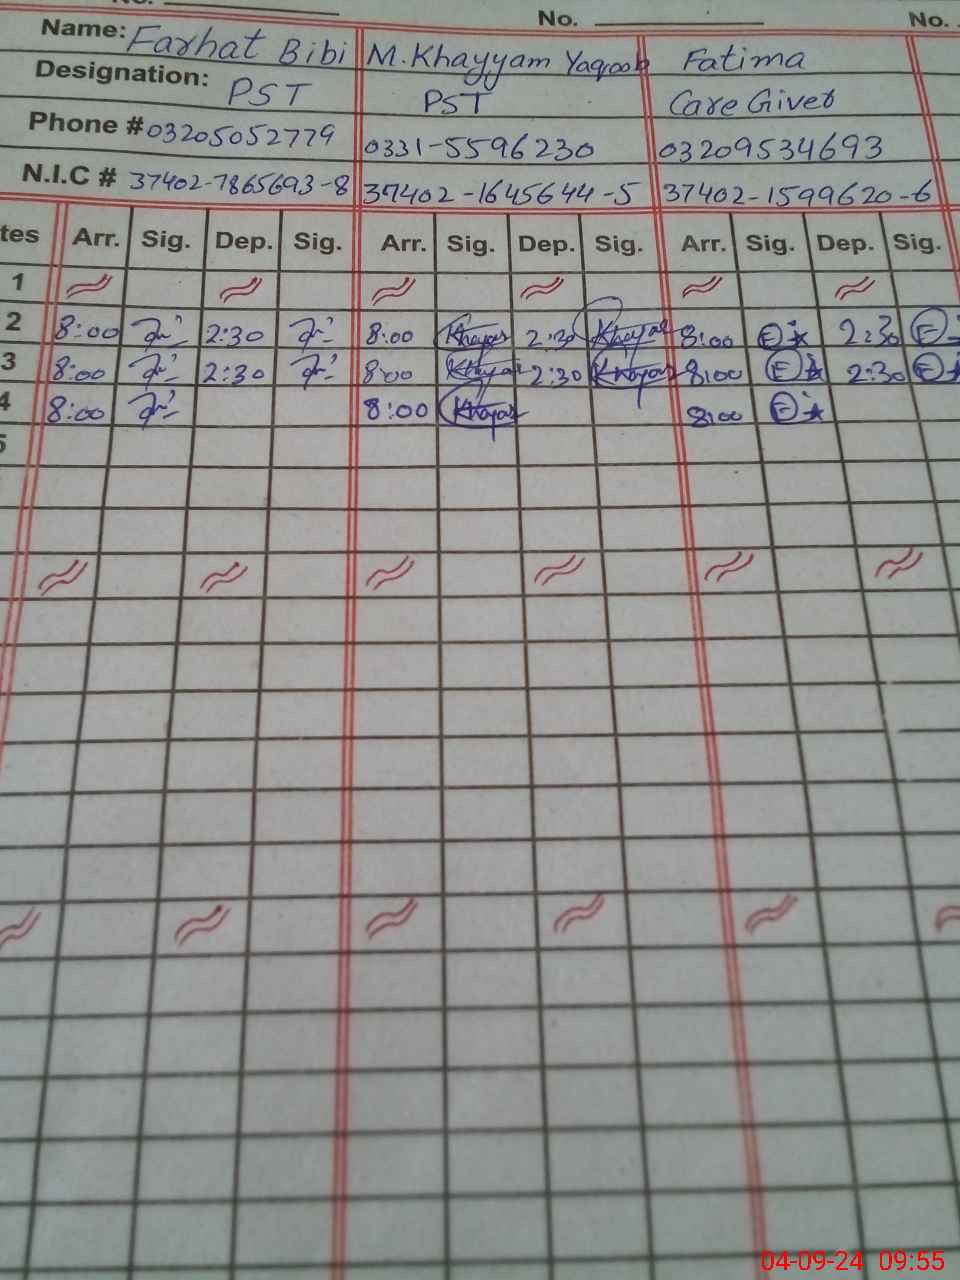 No. No. No.
Name: Farhat Bibi M. Khayyam Yaqoob Fatima
Designation: PST PST Care Giver
Phone # 03205052779 0331-5596230 03209534693
N.I.C # 37402-7865693-8 37402-1645644-5 37402-1599620-6
tes Arr. Sig. Dep. Sig. Arr. Sig. Dep. Sig. Arr. Sig. Dep. Sig.
1
2 8:00 2:30 8:00 Khayam 2:30 Khayam 8:00 2:30
3 8:00 2:30 8:00 Khayam 2:30 Khayam 8:00 2:30
4 8:00 8:00 Khayam 8:00
5
04-09-24 09:55